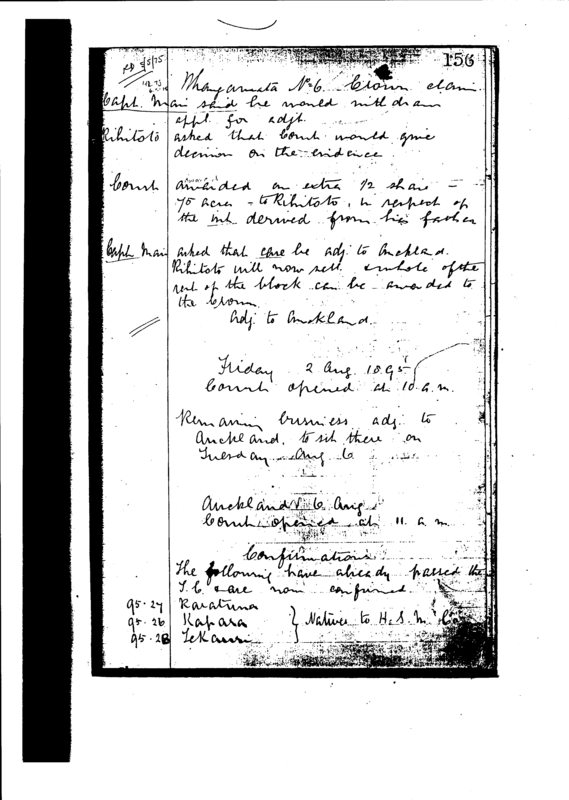 156
Whangamata No 6. Crown claim
Capt. Mair said he would withdraw
appl. for adjt.
Rihitoto asked that Court would give
decision on the evidence
Court awarded an extra 1/2 share =
75 acres - to Rihitoto, in respect of
the int. derived from his father
Capt. Mair asked that case be adj. to Auckland.
Rihitoto will now sell & whole of the
rest of the block can be awarded to
the Crown
Adj. to Auckland.
Friday 2 Aug 1895
Court opened at 10 a.m.
Remaining business adj. to
Auckland, to sit there on
Tuesday Aug 6
Auckland 6 Aug
Court opened at 11 a.m
Confirmations
The following have already passed the
T.C. & are now confirmed
95.27
95.26 Kapara } Natives to H. S. M. Co
95.28 Te